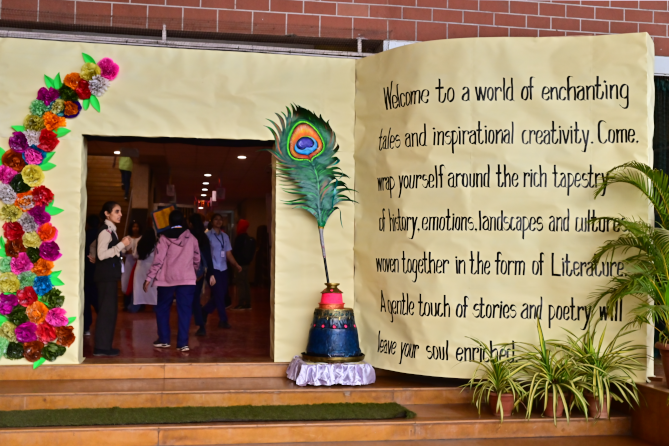 Welcome to a world of enchanting
tales and inspirational creativity. Come.
wrap yourself around the rich tapestry
of history, emotions, landscapes and culture
woven together in the form of Literature.
A gentle touch of stories and poetry will
leave your soul enriched!